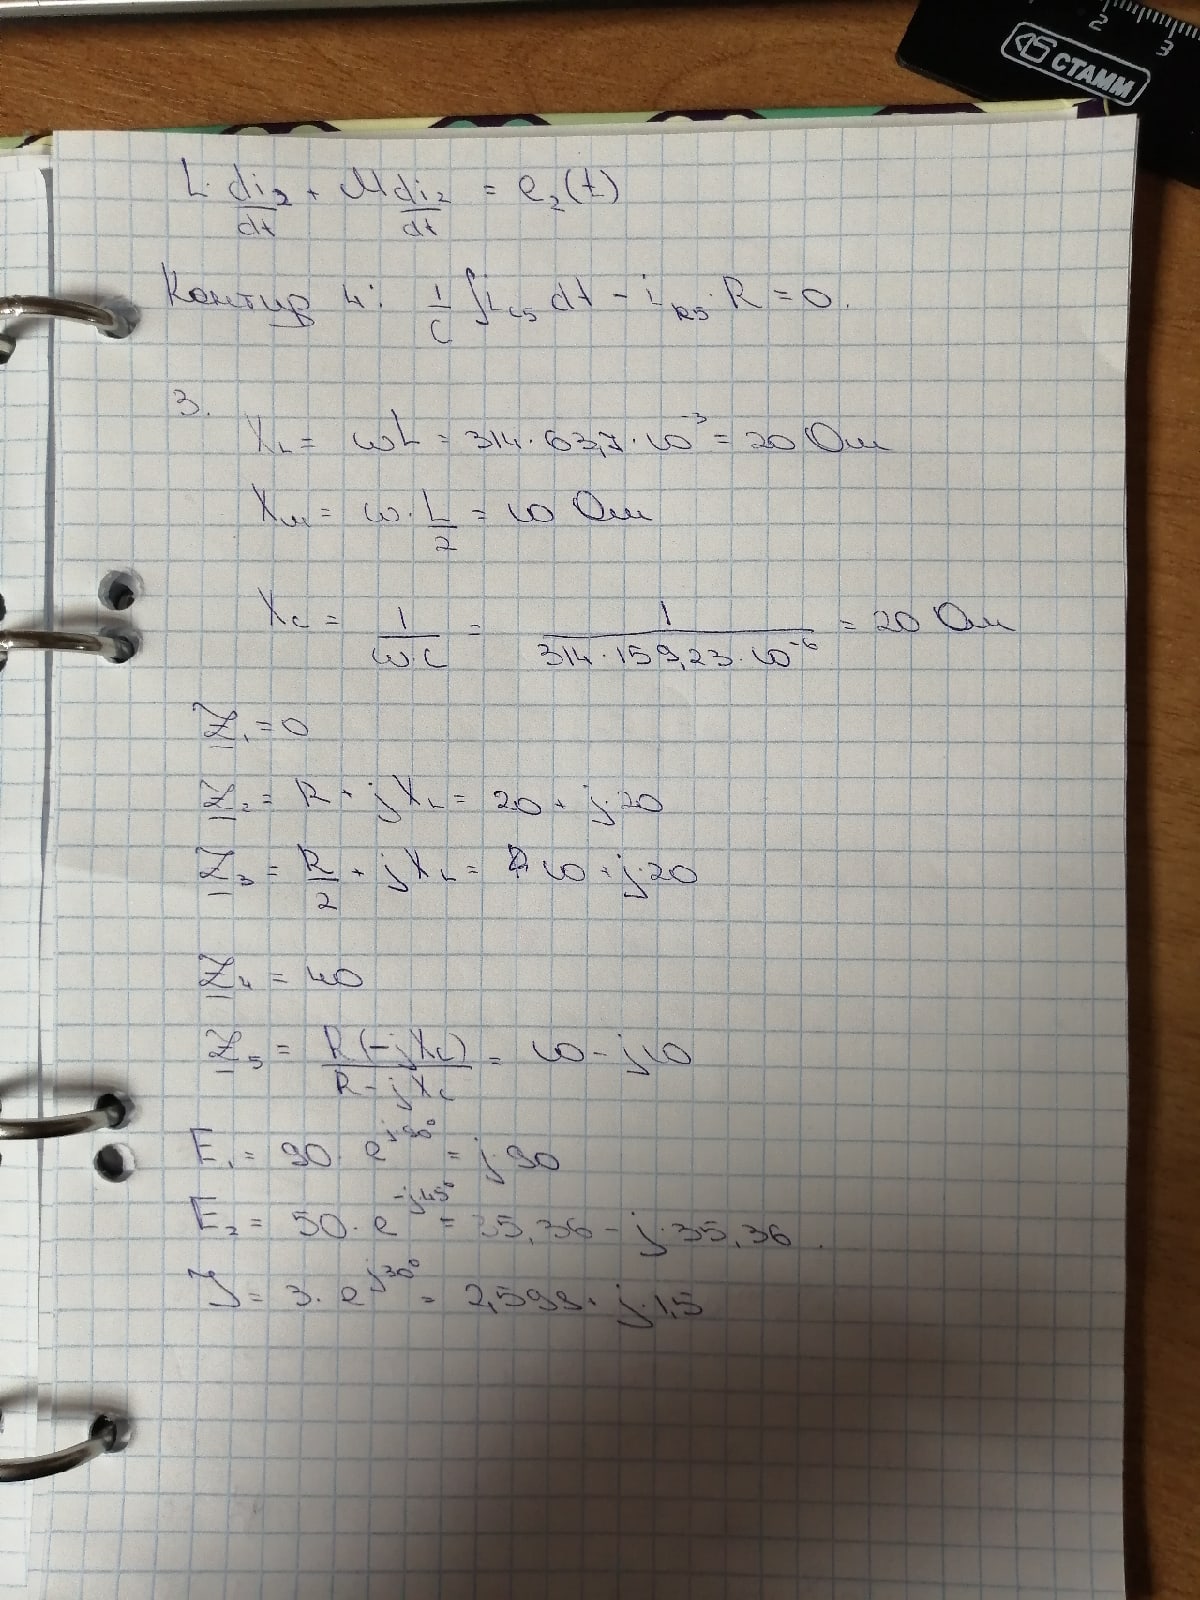 2 3
СТАММ
L · di₂/dt + M di₂/dt = e₂(t)
Контур 4: 1/C ∫i_C5 dt - i_R5 · R = 0.
3.
X_L = ωL = 314 · 63,7 · 10⁻³ = 20 Ом
X_м = ω · L/2 = 10 Ом
X_c = 1/(ω·C) = 1/(314 · 159,23 · 10⁻⁶) = 20 Ом
Z₁ = 0
Z₂ = R + jX_L = 20 + j·20
Z₃ = R/2 + jX_L = 10 + j·20
Z₄ = 40
Z₅ = R(-jX_c)/(R - jX_c) = 10 - j10
E₁ = 90 · e^(j90°) = j·90
E₂ = 50 · e^(-j45°) = 35,36 - j·35,36.
J = 3 · e^(j30°) = 2,598 + j·1,5